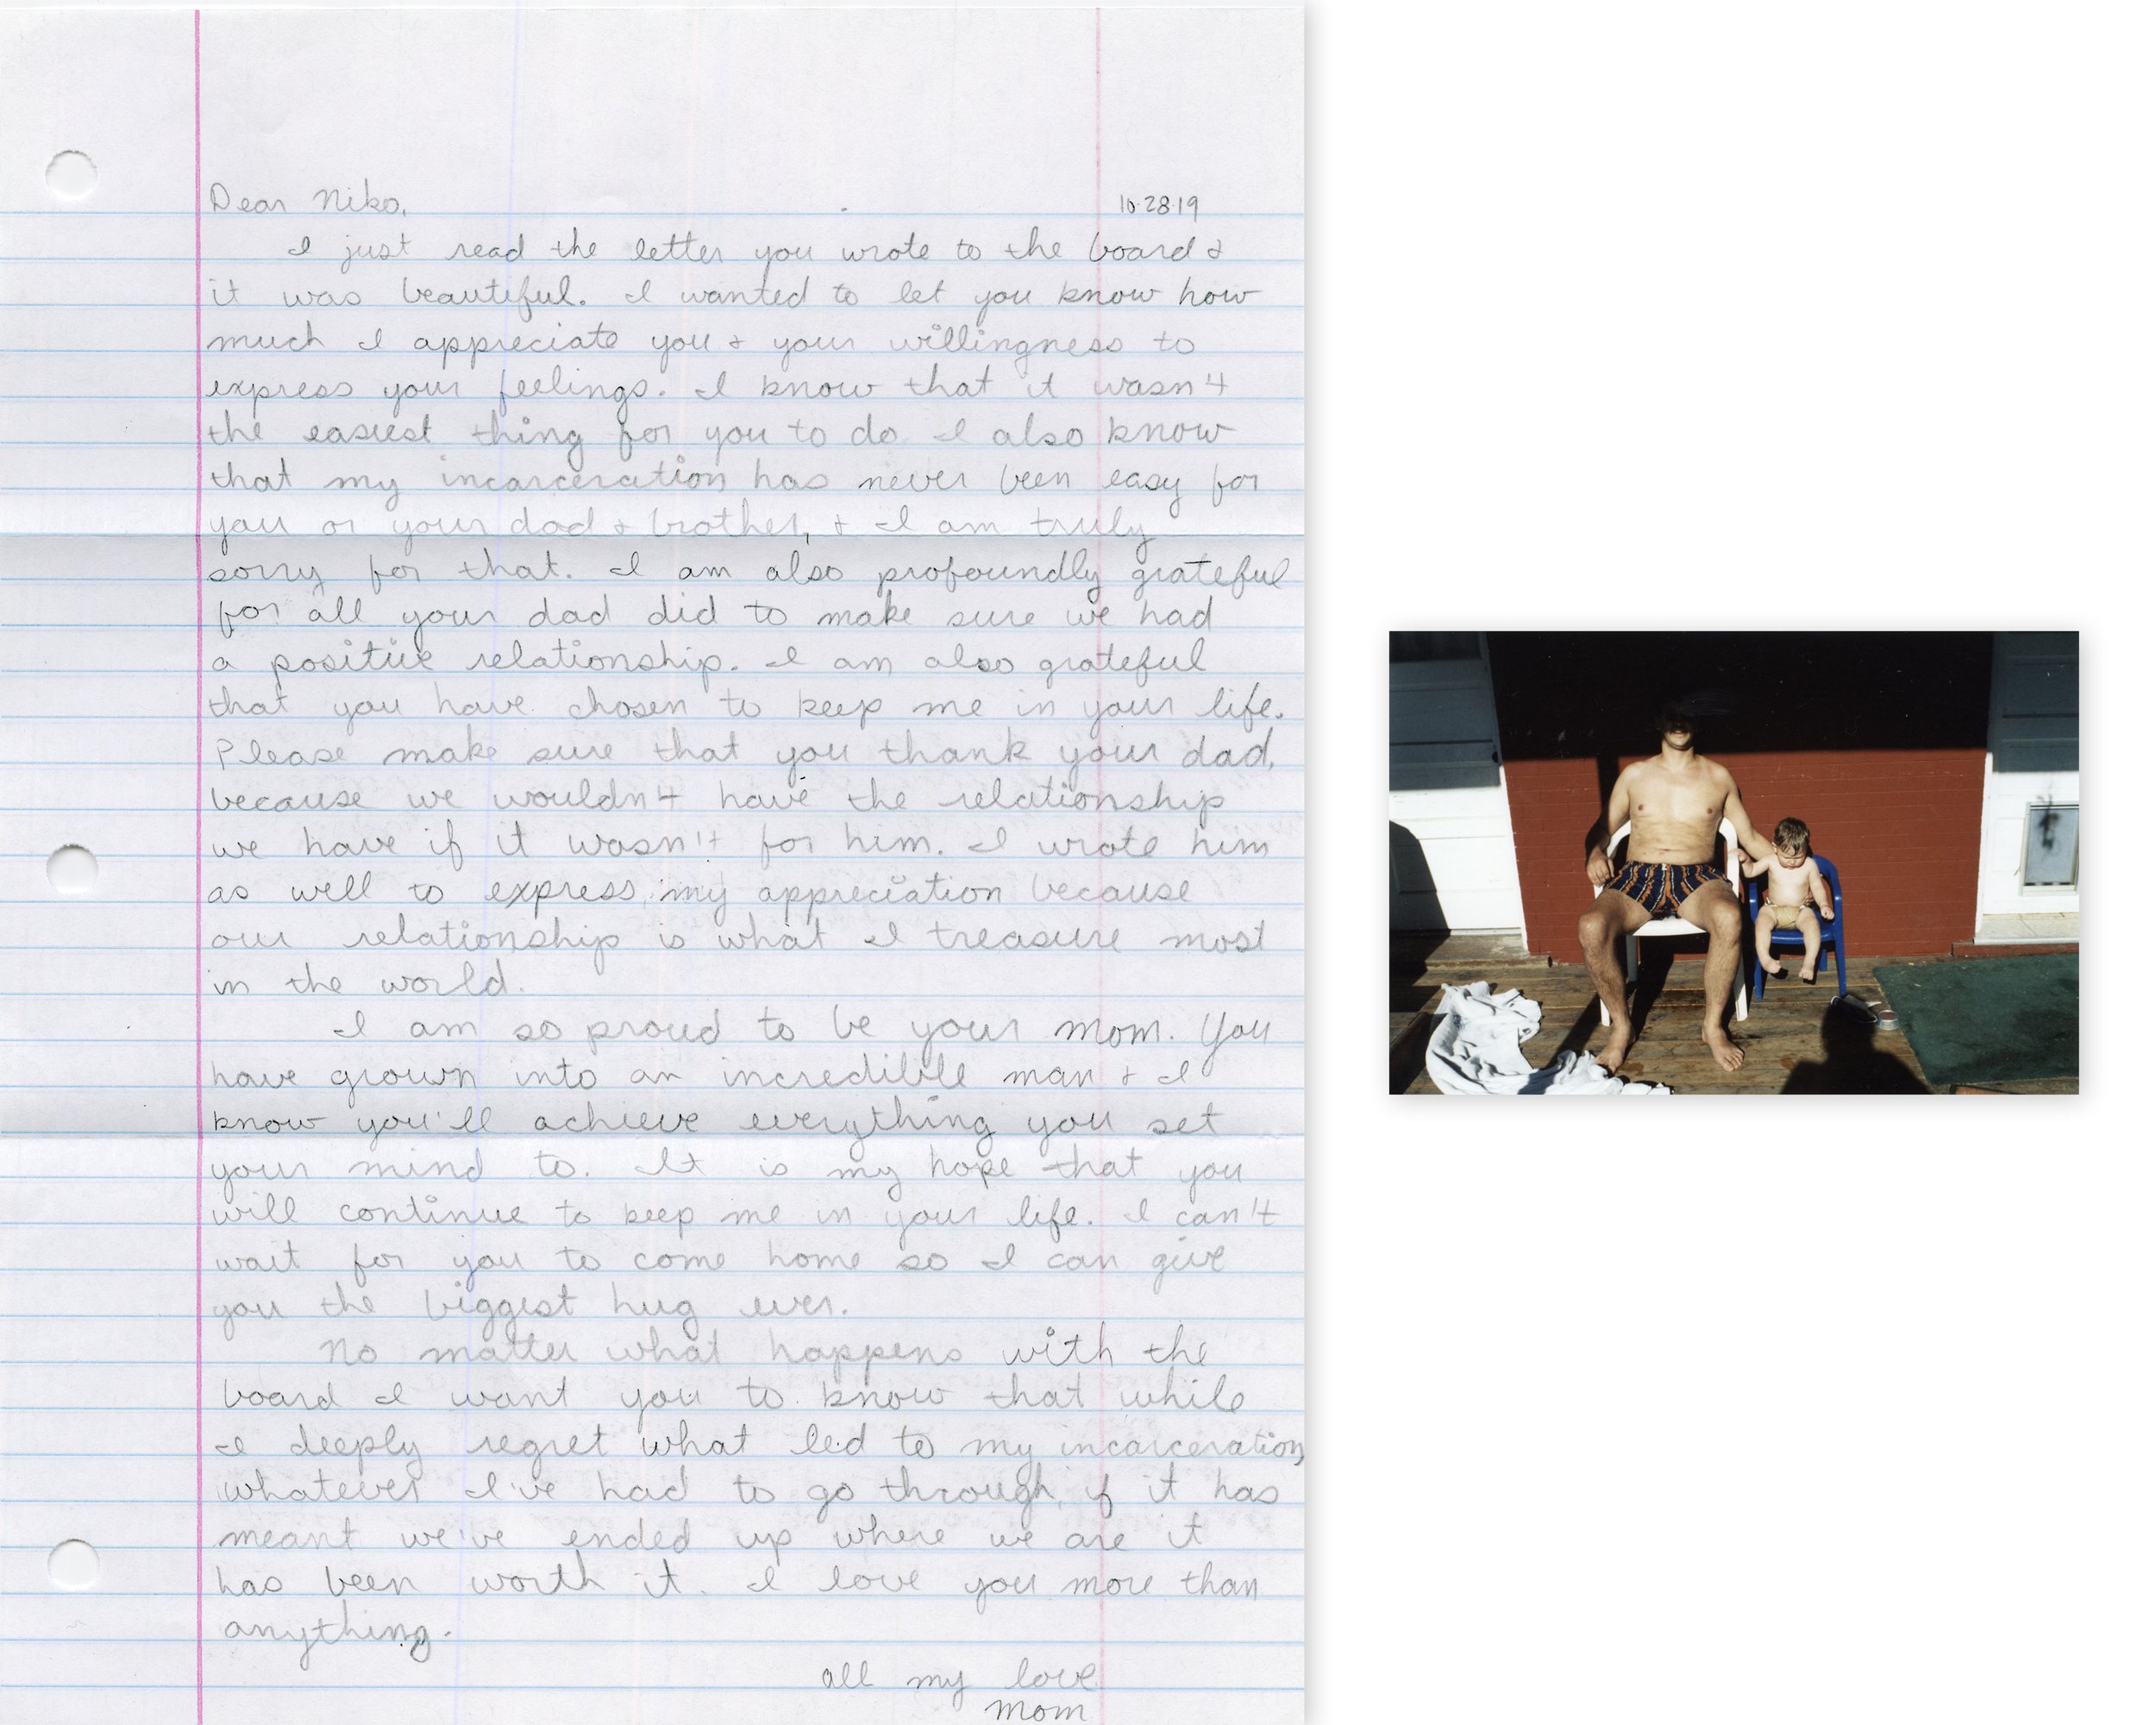 Dear Niko,
10·28·19
I just read the letter you wrote to the board &
it was beautiful. I wanted to let you know how
much I appreciate you & your willingness to
express your feelings. I know that it wasn't
the easiest thing for you to do. I also know
that my incarceration has never been easy for
you or your dad & brother, & I am truly
sorry for that. I am also profoundly grateful
for all your dad did to make sure we had
a positive relationship. I am also grateful
that you have chosen to keep me in your life.
Please make sure that you thank your dad,
because we wouldn't have the relationship
we have if it wasn't for him. I wrote him
as well to express my appreciation because
our relationship is what I treasure most
in the world.
I am so proud to be your mom. You
have grown into an incredible man & I
know you'll achieve everything you set
your mind to. It is my hope that you
will continue to keep me in your life. I can't
wait for you to come home so I can give
you the biggest hug ever.
No matter what happens with the
board I want you to know that while
I deeply regret what led to my incarceration,
whatever I've had to go through, if it has
meant we've ended up where we are it
has been worth it. I love you more than
anything.
all my love
mom